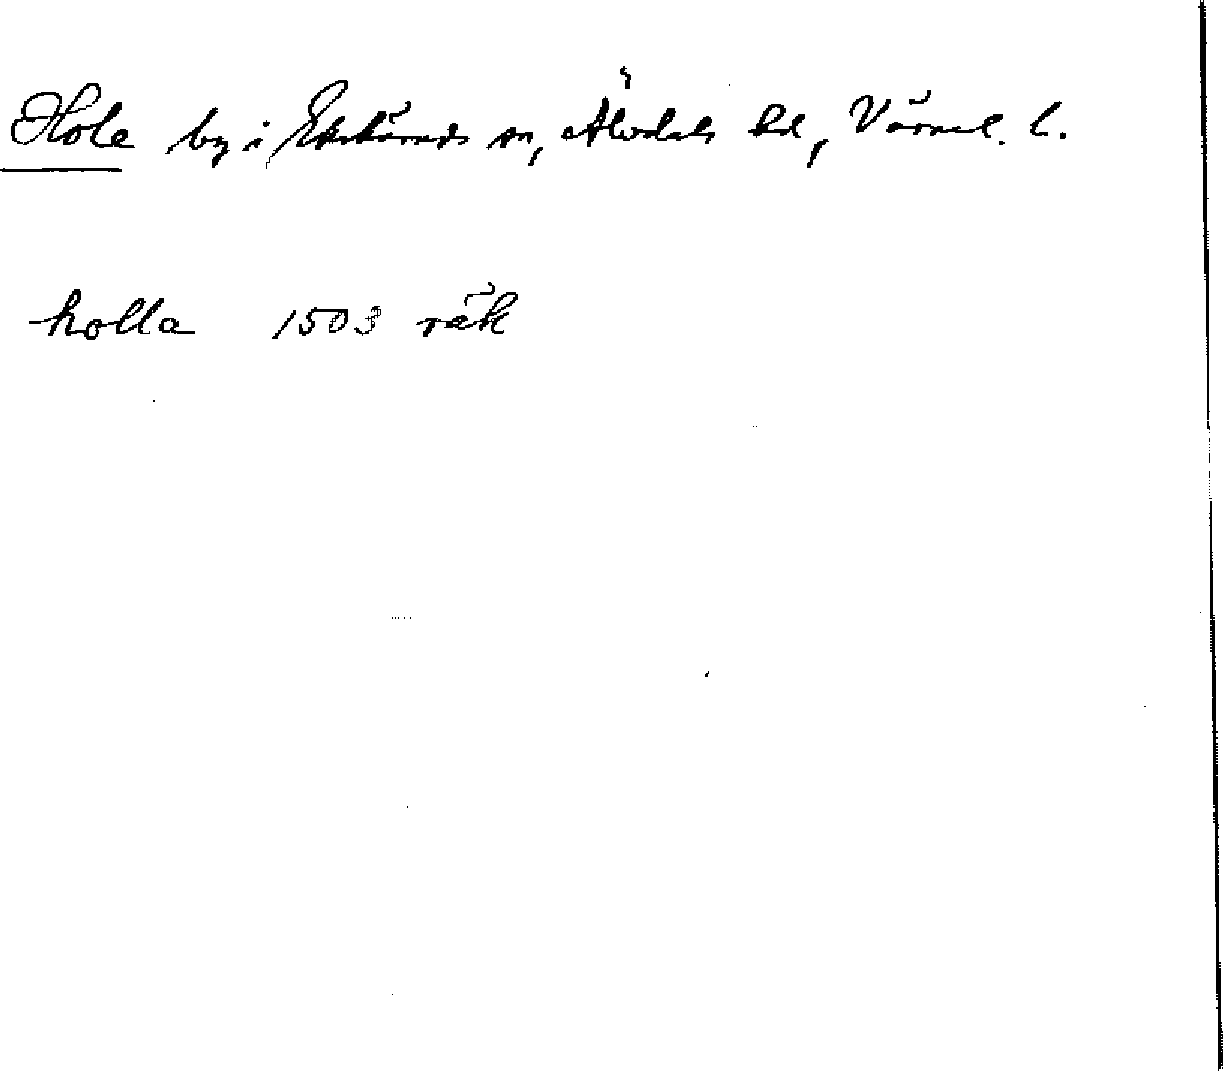 Hole by i Ekshärads sn, Älvdals hd, Värml. l.
holla 1503 räk